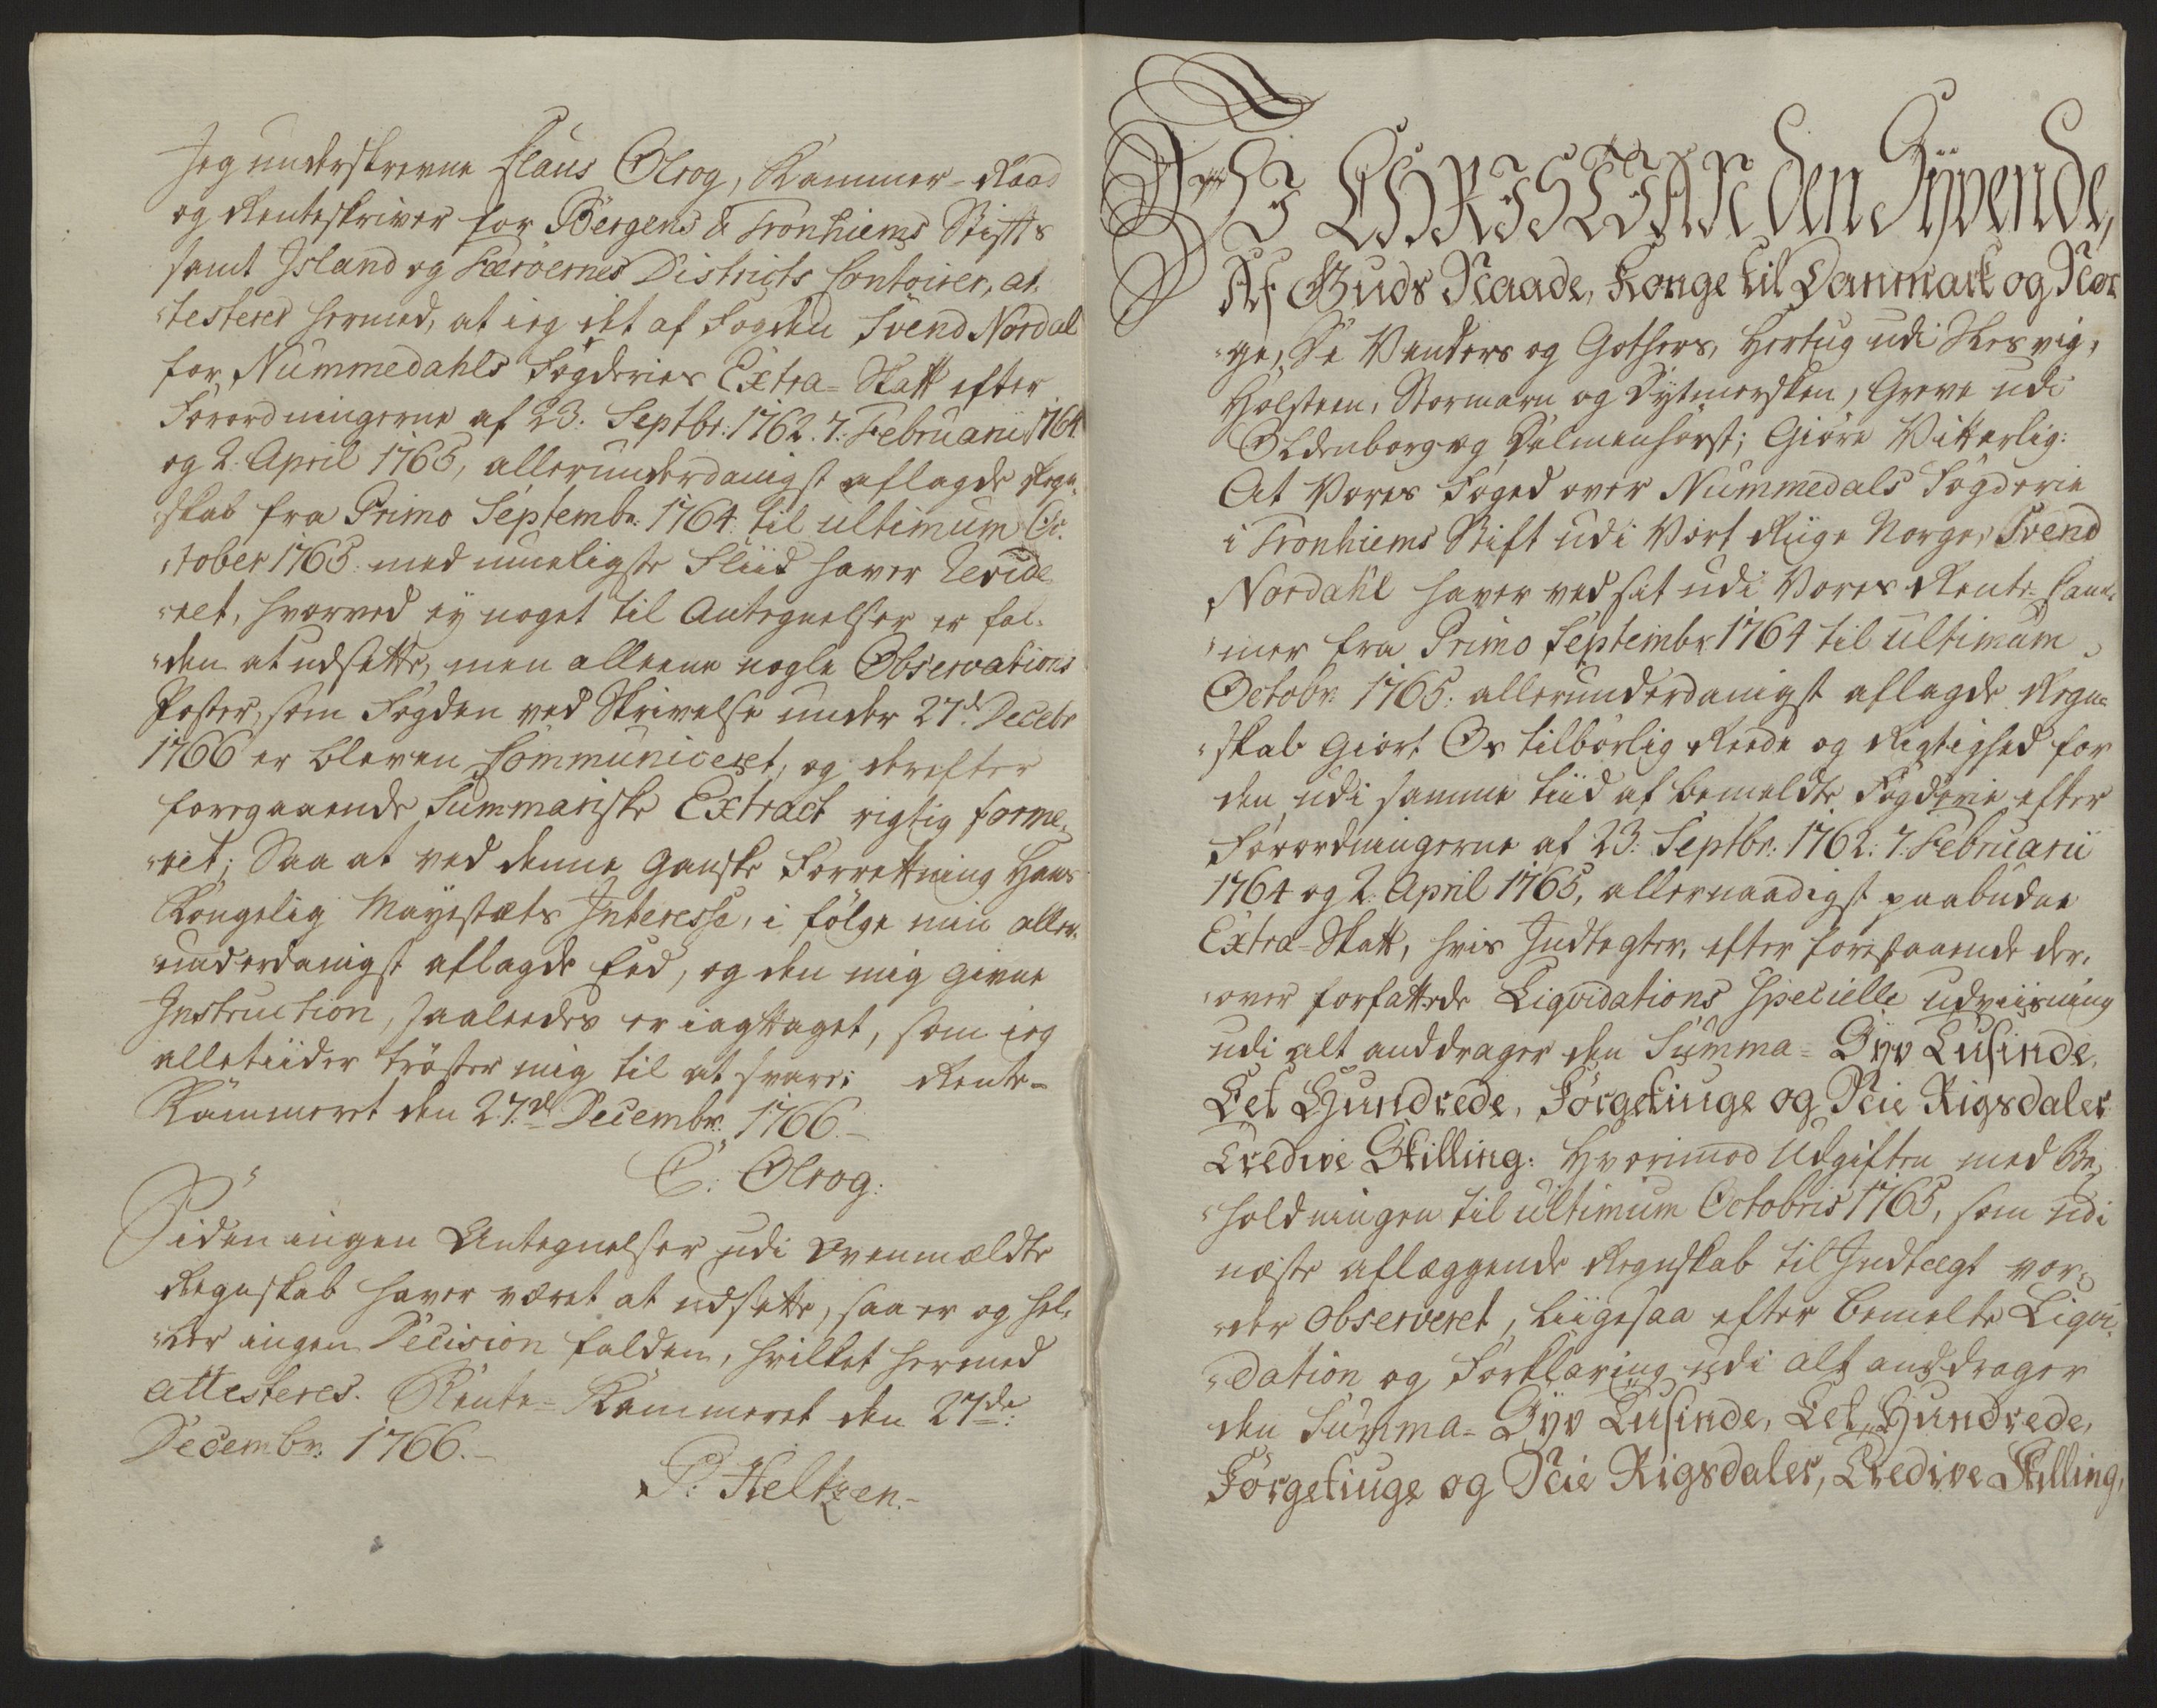 Jeg underskrevne Claus Olrog, Kammer-Raad
og Renteskriver for Bergens & Tronhiems Stifts
samt Island og Færøernes Districts Contoirer, at
testerer hermed, at ieg det af Fogden Svend Nordal
for Nummedahls Fogderies Extra-Skatt efter
Forordningerne af 23. Septbr: 1762. 7: Februarii 1764
og 2. April 1765, allerunderdanigst aflagde Regn-
skab fra Primo Septembr: 1764 til ultimum Oc-
tober 1765 med mueligste Fliid haver Revide-
ret, hvorved ey noget til Antegnelser er fal-
den at udsætte, men alleene nogle Observations
Poster, som Fogden ved Skrivelse under 27d. Decebr
1766 er bleven Communiceret, og derefter
foregaaende Summariske Extract rigtig forme-
ret; Saa at ved denne ganske Forrettning Hans
Kongelig Mayestæts Interesse, i følge min aller-
underdanigst aflagde Eed, og den mig givne
Instruction, saaledes er iagttaget, som ieg
alletiider trøster mig til at svare; Rente-
Kammeret den 27.de Decembr: 1766.-
C: Olrog:
Siden ingen Antegnelser udi Ovenmældte
Regnskab haver været at udsætte, saa er og hel-
ler ingen Decision falden, hvilket hermed
attesteres. Rente-Kammeret den 27de:
Decembr: 1766.-
P: Heltzen.-
Wi CHRISTIAN den Syvende,
Af Guds Naade, Konge til Danmark og Nor
ge, De Venders og Gothers, Hertug udi Slesvig,
Holsteen, Stormarn og Dytmersken, Greve udi
Oldenborg og Delmenhorst; Giøre Vitterlig:
At Vores Foged over Nummedals Fogderie
i Tronhiems Stift udi Vort Riige Norge, Svend
Nordahl haver ved sit udi Vores Rente-Cam-
mer fra Primo Septembr: 1764 til ultimum
Octobr: 1765: allerunderdanigst aflagde Regn-
skab giort Os tilbørlig Reede og Rigtighed for
den udi samme tiid af bemeldte Fogderie efter
Forordningerne af 23: Septbr: 1762: 7: Februarii
1764 og 2: April 1765, allernaadigst paabudne
Extra-Skatt, hvis Indtegter, efter forestaaende der-
over forfattede Liqvidations Specielle udviisning
udi alt anddrager den Summa= Syv Tusinde,
Eet Hundrede, Förgetiuge og Nie Rigsdaler
Tredive Skilling: Hvorimod Udgiften med Be-
holdningen til ultimum Octobris 1765, som udi
næste aflæggende Regnskab til Indtægt vor-
der observeret, liigesaa efter bemelte Liqvi-
dation og Forklaring udi alt anddrager
den Summa= Syv Tusinde, Eet Hundrede,
Förgetiuge og Nie Rigsdaler, Tredive Skilling,